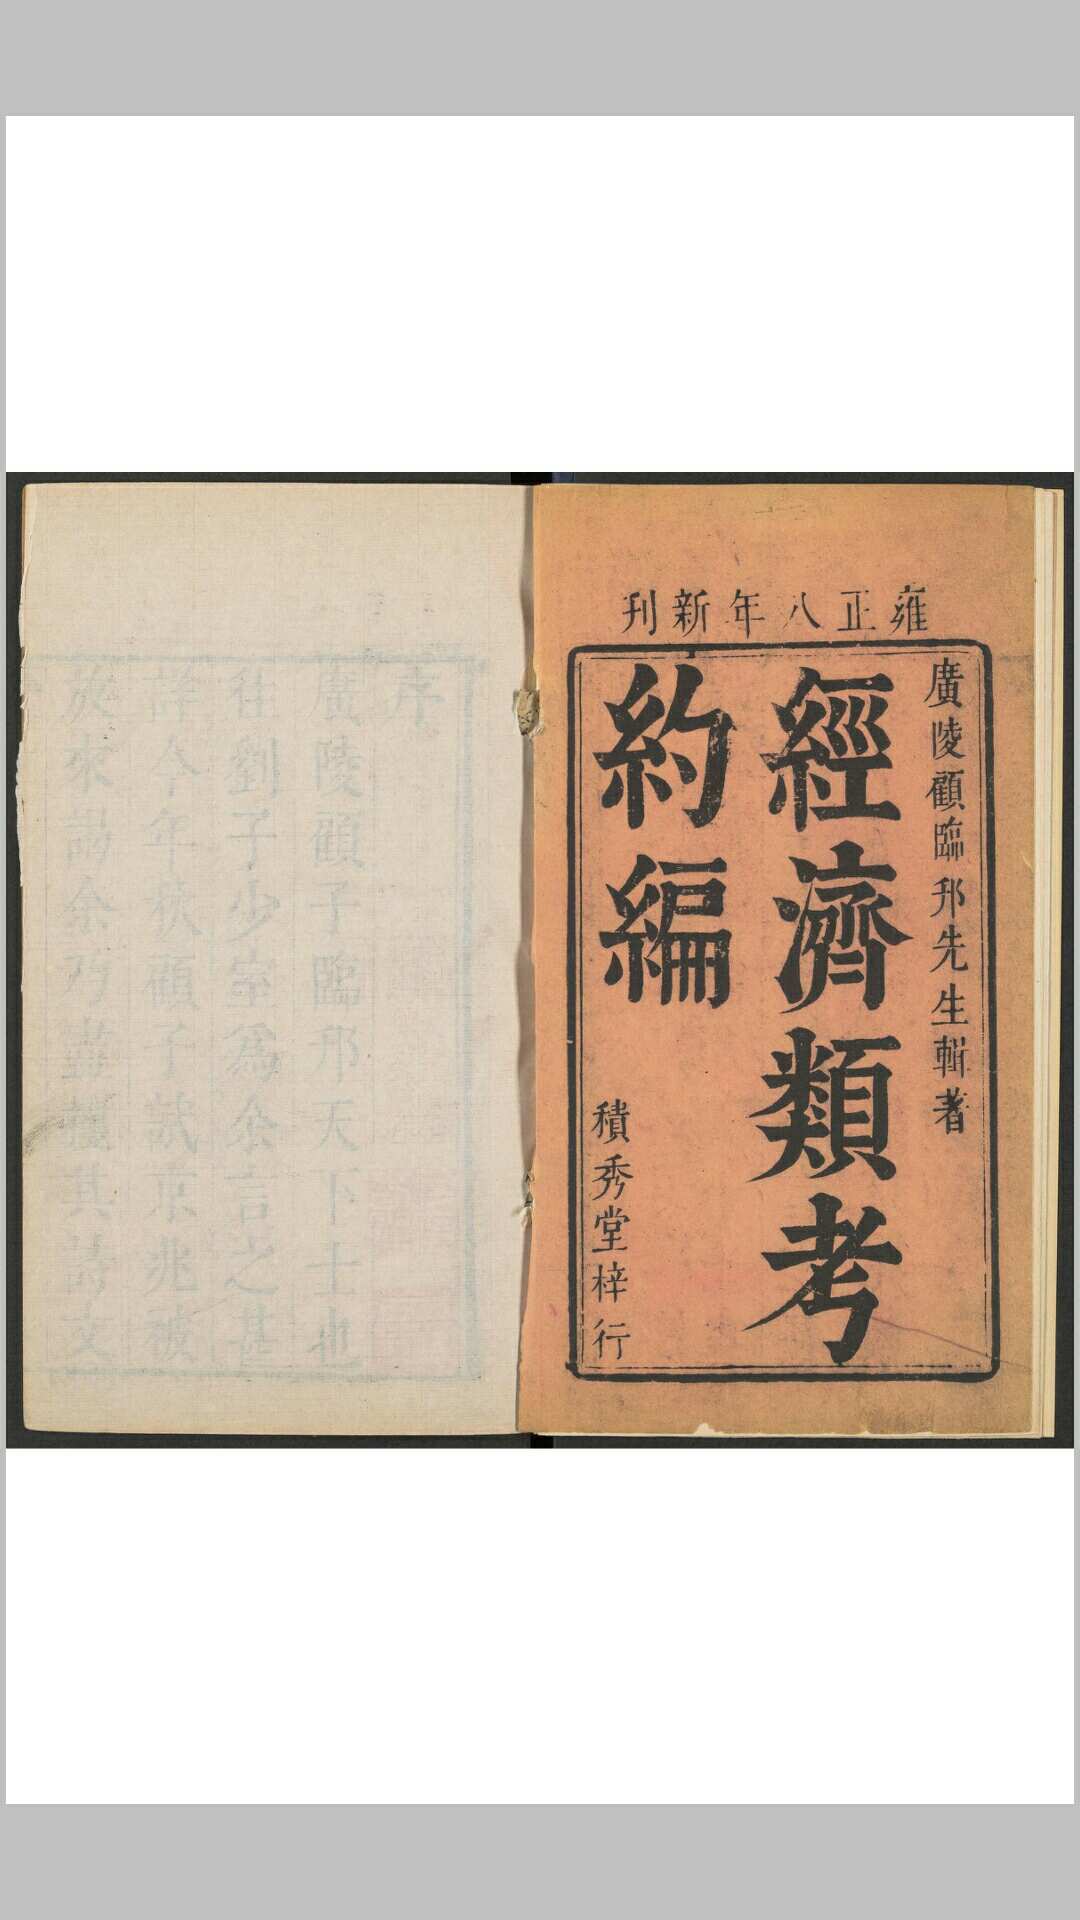 雍正八年新刊
廣陵顧臨邗先生輯著
經濟類考
約編
積秀堂梓行
序
廣陵顧子臨邗天下士也
往劉子少室為余言之甚
詳今年秋顧子試京兆被
放來謁余乃盡讀其詩文